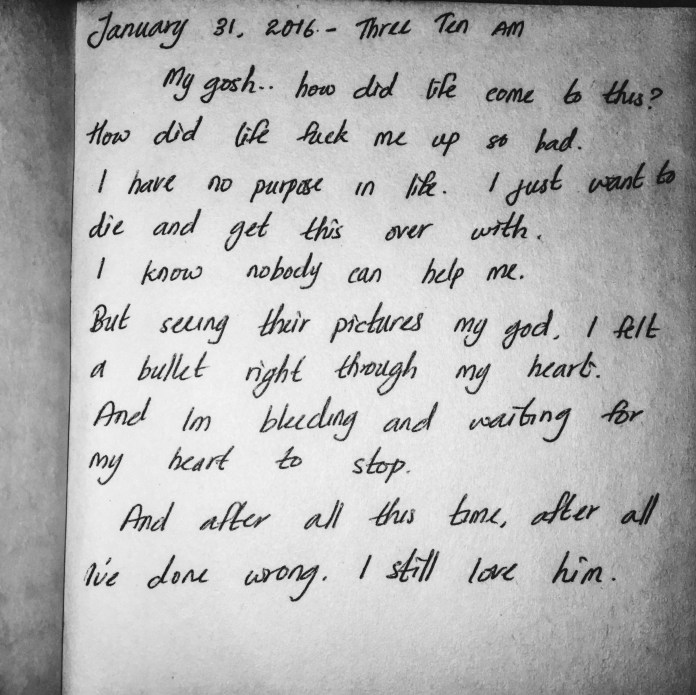 January 31, 2016. - Three Ten AM
My gosh.. how did life come to this?
How did life fuck me up so bad.
I have no purpose in life. I just want to
die and get this over with.
I know nobody can help me.
But seeing their pictures my god, I felt
a bullet right through my heart.
And Im bleeding and waiting for
my heart to stop.
And after all this time, after all
I've done wrong. I still love him.